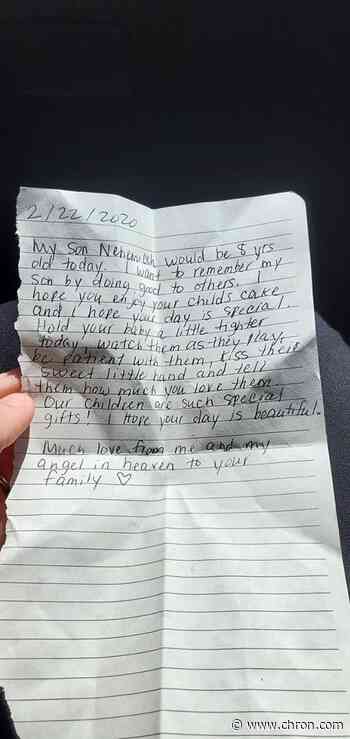 2/22/2020
My son would be 8 yrs
old today. I want to remember my
son by doing good to others. I
hope you enjoy your childs cake
and I hope your day is special.
Hold your baby a little tighter
today, watch them as they play,
be patient with them, kiss their
sweet little hand and tell
them how much you love them.
Our children are such special
gifts! I hope your day is beautiful.
Much love from me and my
angel in heaven to your
family ♡
© www.chron.com